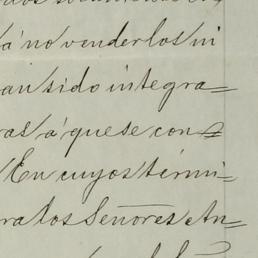 á no venderlos ni
an sido integra=
ras á que se con=
En cuyos térmi=
ra los Señores An=